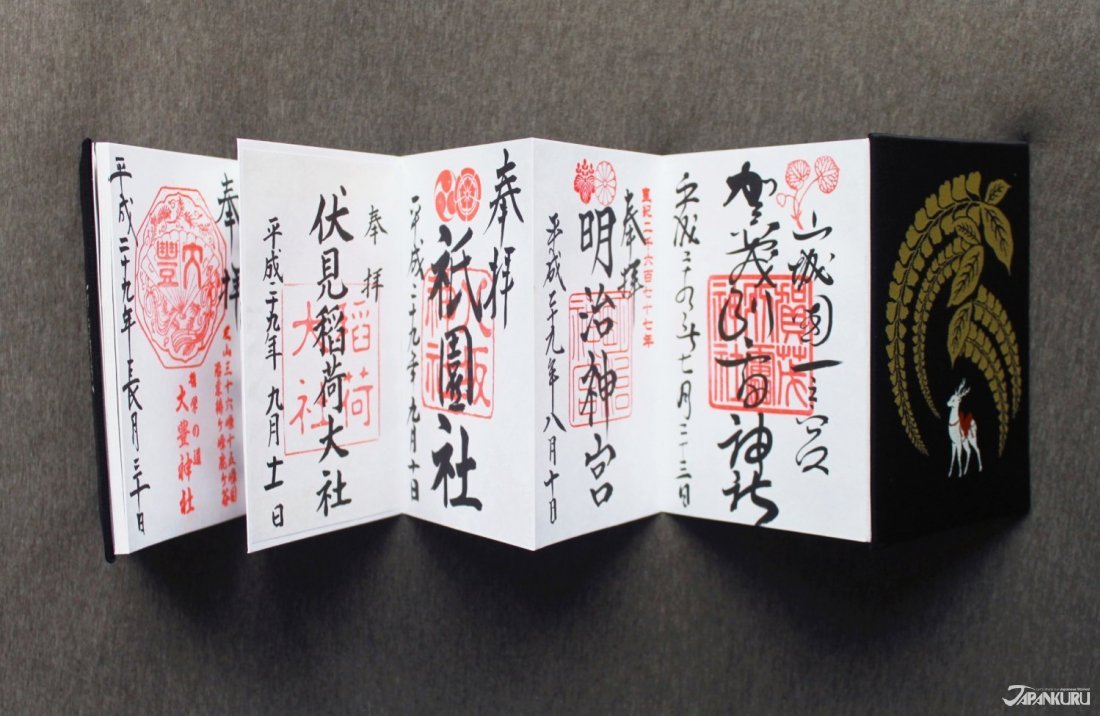 山城國一之宮
賀茂別雷神社
平成二十九年七月二十三日
皇紀二千六百七十七年
奉拝
明治神宮
平成二十九年八月十日
奉拝
祇園社
平成二十九年九月十日
奉拝
伏見稲荷大社
稲荷
大社
平成二九年九月十一日
奉拝
大豊神社
大豐
平成二十九年長月三十日
JAPANKURU